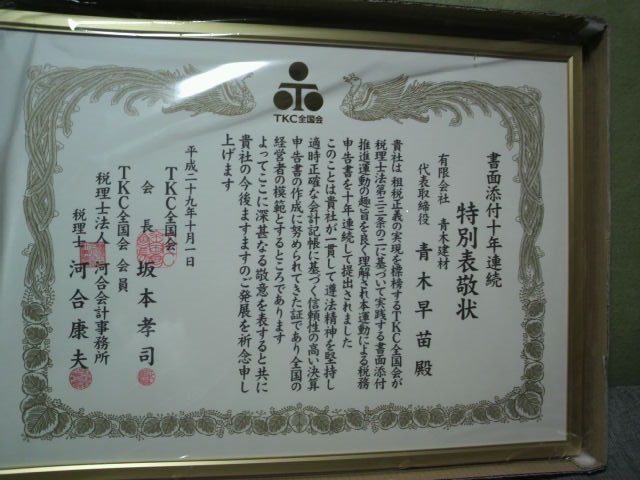 TKC全国会
書面添付十年連続
特別表敬状
有限会社 青木建材
代表取締役 青木早苗殿
貴社は租税正義の実現を標榜するTKC全国会が
税理士法第三三条の二に基づいて実践する書面添付
推進運動の趣旨を良く理解され本運動による税務
申告書を十年連続して提出されました
このことは貴社が一貫して遵法精神を堅持し
適時正確な会計記帳に基づく信頼性の高い決算
申告書の作成に努められてきた証であり全国の
経営者の模範とするところであります
よってここに深甚なる敬意を表すると共に
貴社の今後ますますのご発展を祈念申し
上げます
平成二十九年十月一日
TKC全国会
会長 坂本孝司
TKC全国会 会員
税理士法人 河合会計事務所
税理士 河合康夫